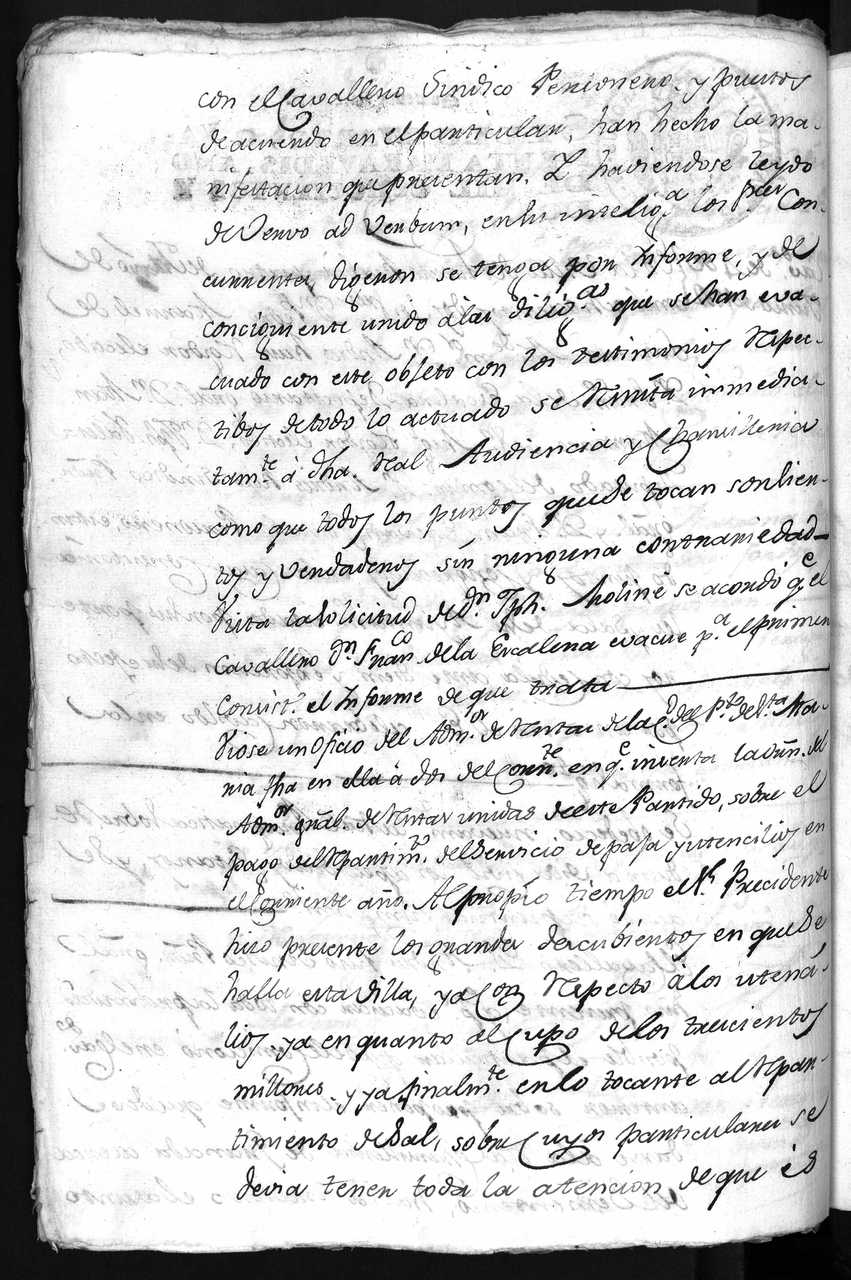 con el Cavallero Sindico Personero, y puestos
de acuerdo en el particular, han hecho la ma-
nifestacion que presentan. Y haviendose leydo
de Vervo ad Verbum, en su intelig.a los S.res Con-
currentes, digeron se tenga por Informe, y de
consiguiente unido alas dilig.as que se han eva-
cuado con este objeto con los testimonios respec-
tibos de todo lo actuado se remita inmedia-
tam.te á dha. Real Audiencia y Chansilleria
como que todos los puntos que se tocan son sien-
tos y verdaderos sin ninguna contrariedad
Vista la solicitud de d.n Jph. Moliné se acordó q.e el
Cavallero D.n Fran.co de la Escalera evacue p.a el primer
Consist.o el Informe de que trata
Viose un Oficio del Adm.or de Rentas de la C.d del P.to de S.ta Ma-
ria fha en ella á dos del Corr.te en q.e inserta la orn. del
Adm.or gral. de Rentas unidas de este Partido, sobre el
pago del Repartim.to del Servicio de paja y utencilios en
el Corriente año. Al propio tiempo el S.r Precidente
hizo presente los grandes descubiertos en que se
halla esta Villa, ya Con Respecto á los utenci-
lios, ya en quanto al Cupo de los trescientos
millones, y ya finalm.te en lo tocante al Repar-
timiento de Sal, sobre Cuyos particulares se
devia tener toda la atencion de que es